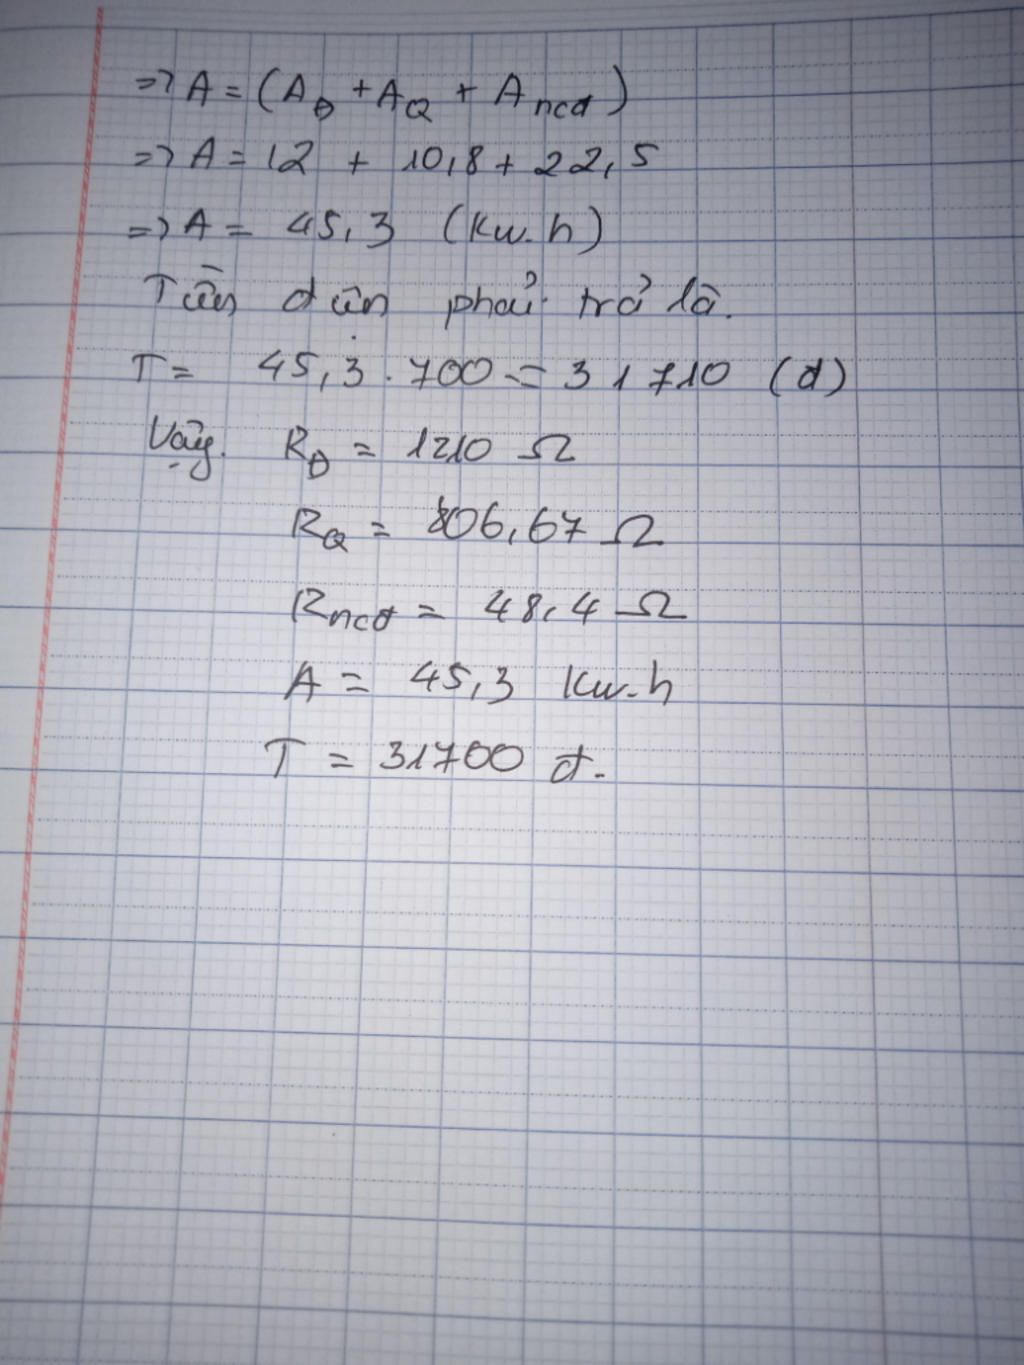 => A = (AĐ + AQ + Ancđ)
=> A = 12 + 10,8 + 22,5
=> A = 45,3 (Kw.h)
Tiền điện phải trả là.
T = 45,3 . 700 = 31710 (đ)
Vậy. RĐ = 1210 Ω
RQ = 806,67 Ω
Rncđ = 48,4 Ω
A = 45,3 Kw.h
T = 31700 đ.